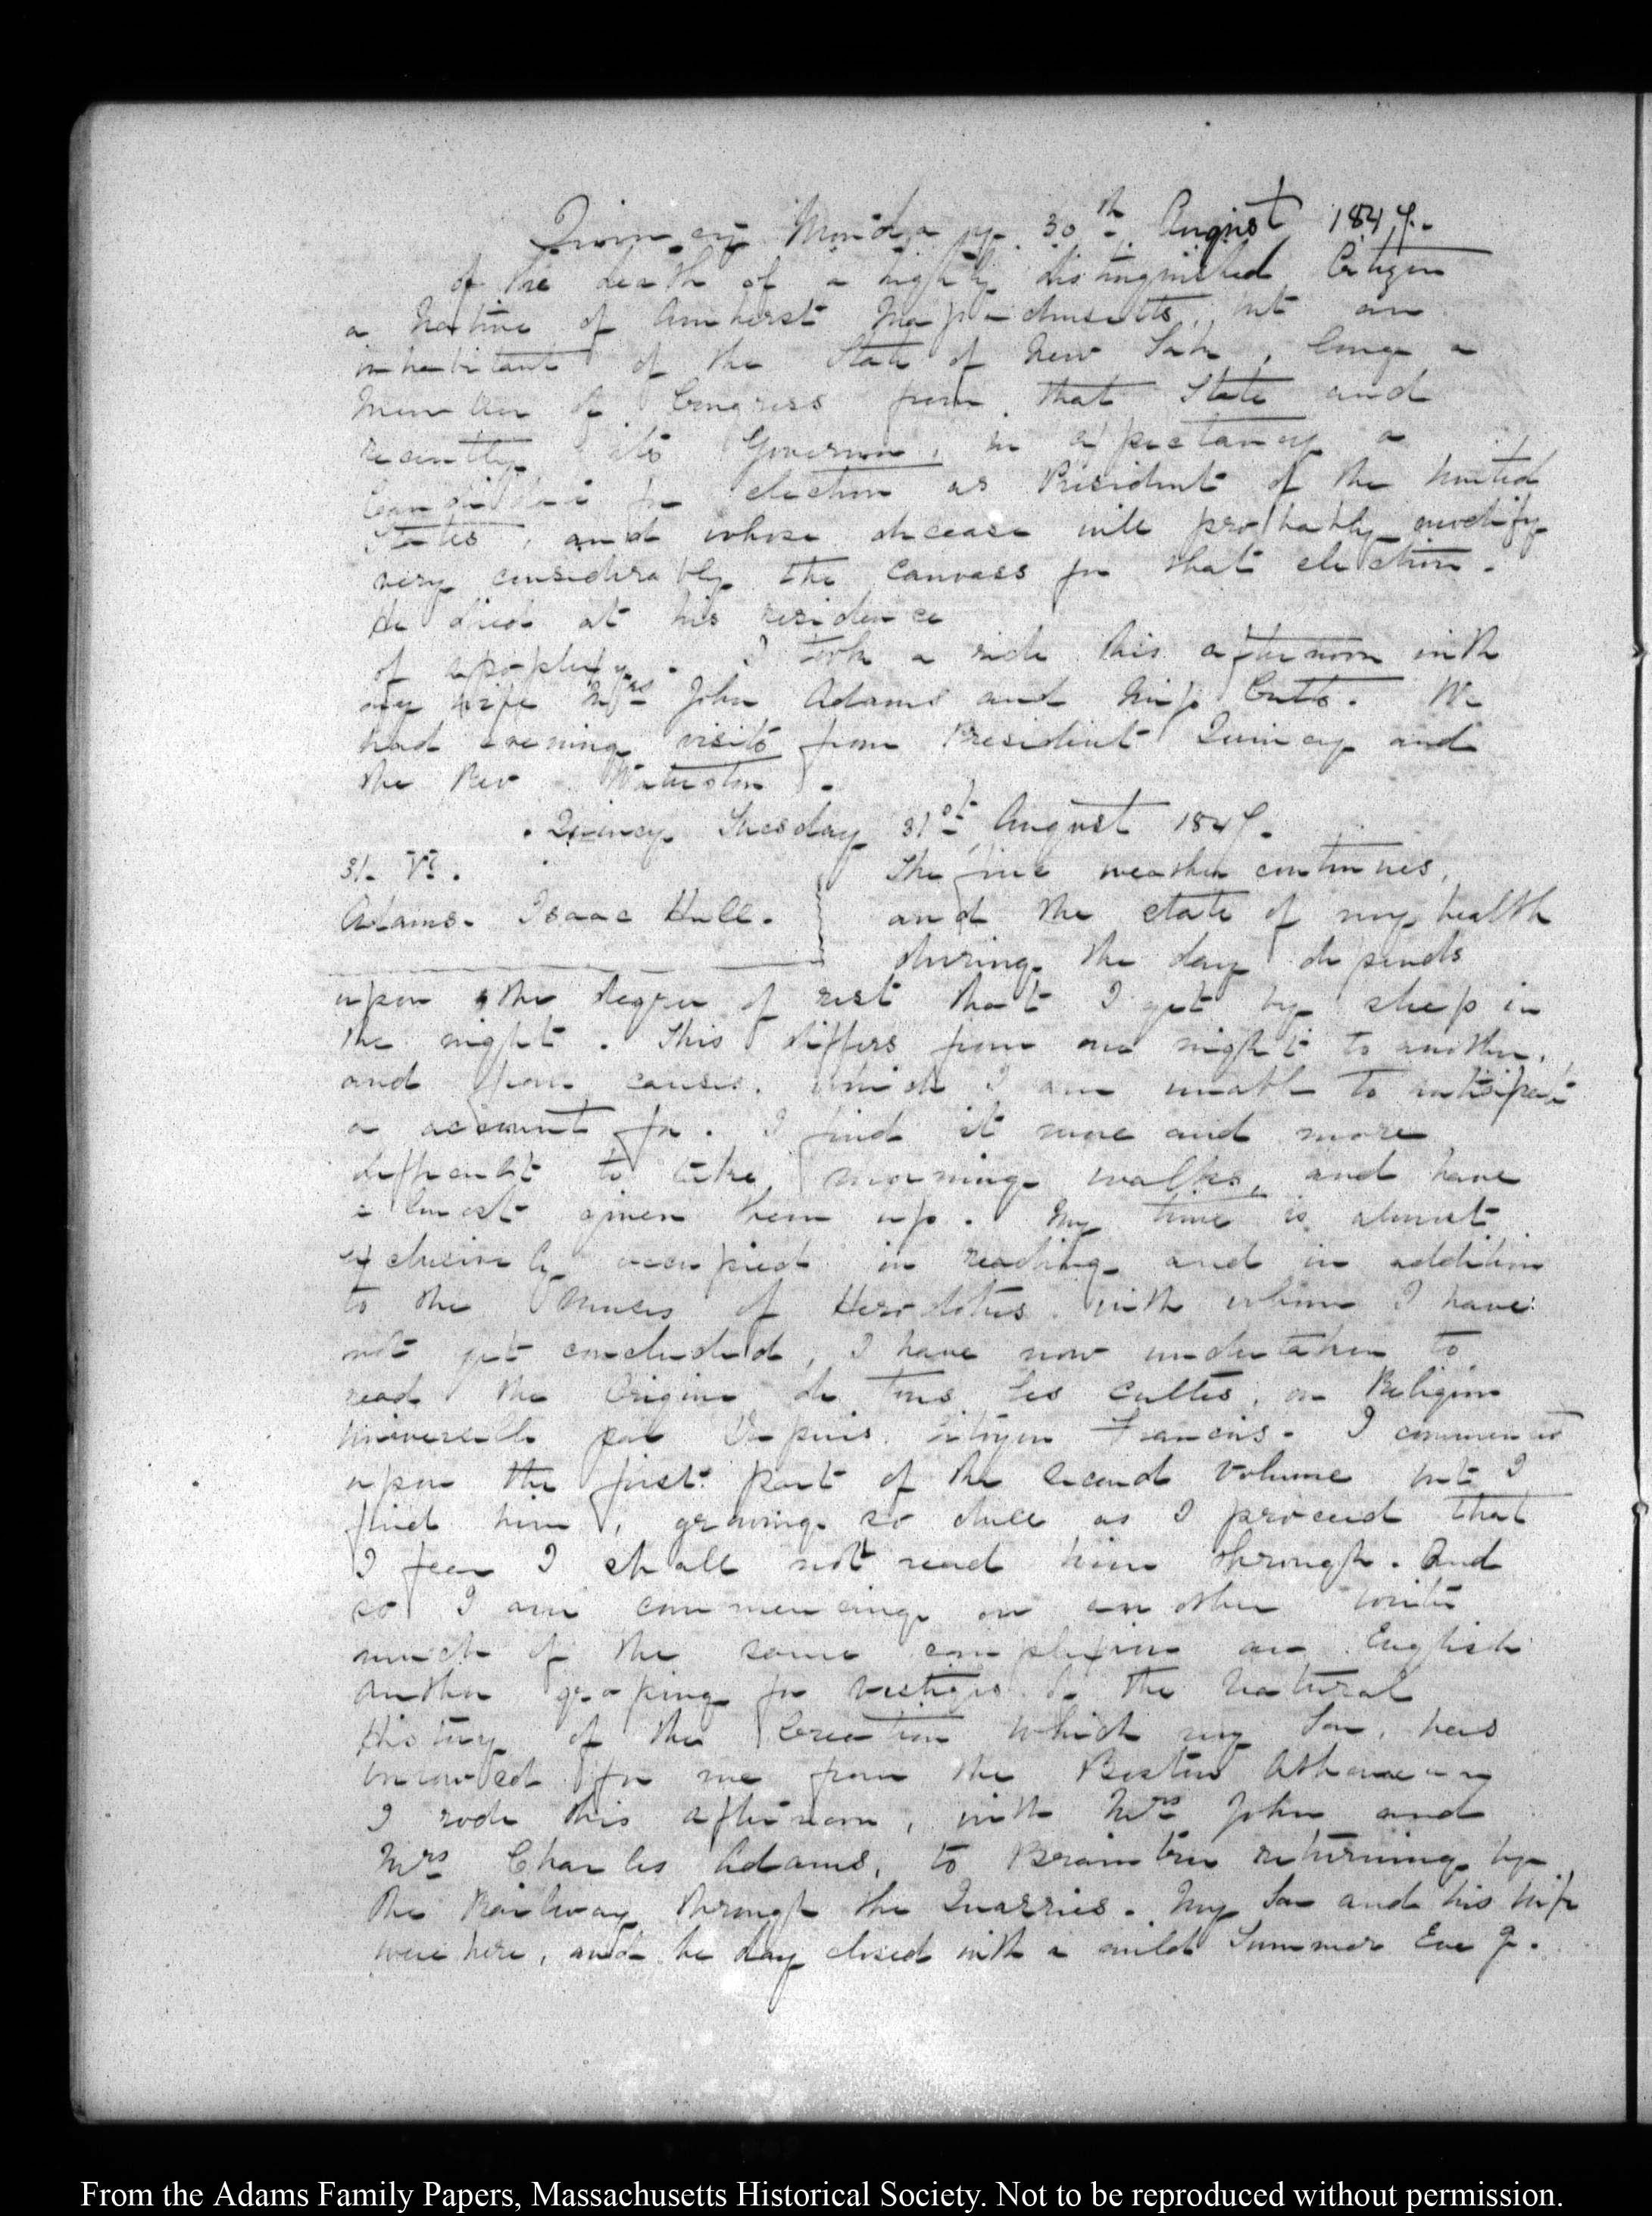 Quincy Monday 30th August 1847.
of the death of a highly distinguished Citizen
a Native of Amherst Massachusetts, but an
inhabitant of the State of New York, long a
Member of Congress from that State and
recently its Governor, in expectancy a
Candidate for election as President of the United
States, and whose decease will probably modify
very considerably the canvass for that election.
He died at his residence
of apoplexy. I took a ride this afternoon with
my wife Mrs John Adams and Miss Cutts. We
had evening visits from President Quincy and
the Rev Waterston.
Quincy Tuesday 31st August 1847.
31. V.
Adams. Isaac Hull.
The fine weather continues,
and the state of my health
during the day depends
upon the degree of rest that I get by sleep in
the night. This differs from one night to another,
and from causes which I am unable to anticipate
or account for. I find it more and more
difficult to take morning walks, and have
almost given them up. My time is almost
exclusively occupied in reading and in addition
to the Muses of Herodotus with whom I have
not yet concluded, I have now undertaken to
read the Origine de tous les cultes, ou Religion
universelle par Dupuis, Citoyen Francois. I commenced
upon the first part of the second volume but I
find him, growing so dull as I proceed that
I fear I shall not read him through. And
so I am commencing on another writer
much of the same complexion an English
author groping for vestiges of the Natural
History of the Creation which my Son, has
borrowed for me from the Boston Athenaeum
I rode this afternoon, with Mrs John and
Mrs Charles Adams, to Braintree returning by
the Railway through the Quarries. My Son and his wife
were here, and the day closed with a mild Summer Eveg.
From the Adams Family Papers, Massachusetts Historical Society. Not to be reproduced without permission.